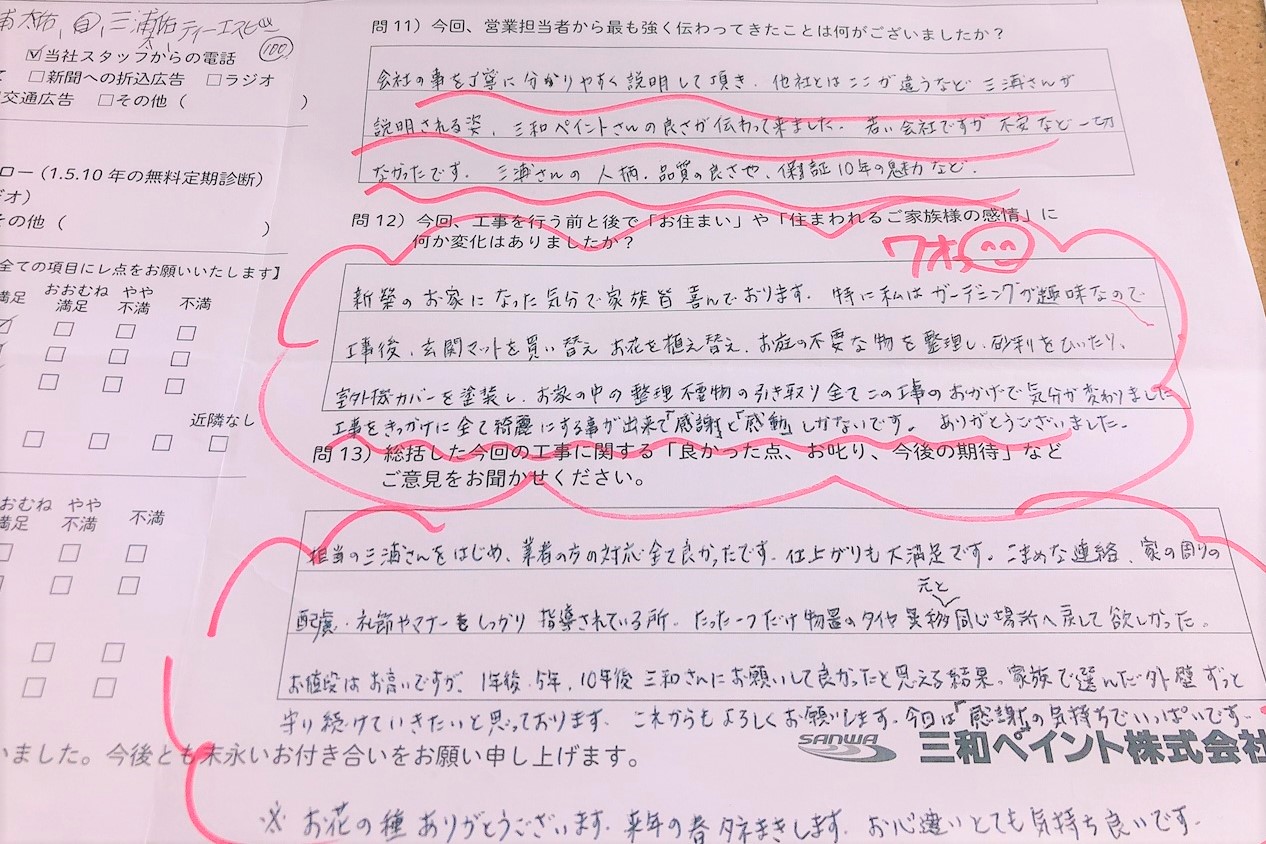 三浦佑
ティーエスピー
100
☑当社スタッフからの電話
□新聞への折込広告 □ラジオ
交通広告 □その他( )
ロー(1.5.10年の無料定期診断)
その他( )
全ての項目にレ点をお願いいたします】
満足 おおむね満足 やや不満 不満
近隣なし
おむね満足 やや不満 不満
問11)今回、営業担当者から最も強く伝わってきたことは何がございましたか?
会社の事を丁寧に分かりやすく説明して頂き、他社とはここが違うなど三浦さんが
説明される姿、三和ペイントさんの良さが伝わって来ました。若い会社ですが不安など一切
なかったです。三浦さんの人柄、品質の良さや、保証10年の魅力など。
問12)今回、工事を行う前と後で「お住まい」や「住まわれるご家族様の感情」に
何か変化はありましたか?
ワオっ
新築のお家になった気分で家族皆喜んでおります。特に私はガーデニングが趣味なので
工事後、玄関マットを買い替えお花を植え替え、お庭の不要な物を整理し、砂利をひいたり、
室外機カバーを塗装し、お家の中の整理不要物の引き取り全てこの工事のおかげで気分が変わりました
工事をきっかけに全て綺麗にする事が出来て「感謝」と「感動」しかないです。ありがとうございました。
問13)総括した今回の工事に関する「良かった点、お叱り、今後の期待」など
ご意見をお聞かせください。
担当の三浦さんをはじめ、業者の方の対応全て良かったです。仕上がりも大満足です。こまめな連絡、家の周りの
配慮、礼節やマナーもしっかり指導されている所。たった一つだけ物置のタイヤ 元と同じ場所へ戻して欲しかった。
お値段はお高いですが、1年後、5年、10年後三和さんにお願いして良かったと思える結果。家族で選んだ外壁ずっと
守り続けていきたいと思っております。これからもよろしくお願いします。今日は「感謝」の気持ちでいっぱいです。
いました。今後とも末永いお付き合いをお願い申し上げます。
SANWA 三和ペイント株式会社
※お花の種ありがとうございます。来年の春タネまきします。お心遣いとても気持ち良いです。